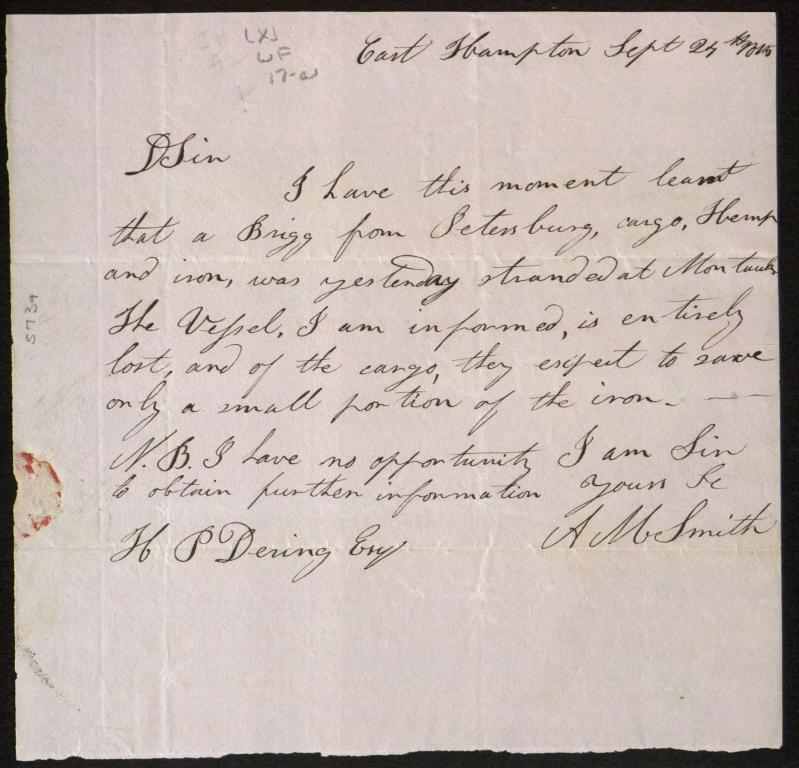 (X)
WF
17-a
East Hampton Sept 25th
D Sir
I have this moment learnt
that a Brigg from Petersburg, cargo, Hemp
and iron, was yesterday stranded at Montauk
The Vessel, I am informed, is entirely
lost, and of the cargo, they expect to save
only a small portion of the iron. —
N. B. I have no opportunity I am Sir
to obtain further information yours &c
H P Dering Esqr A M Smith
5739